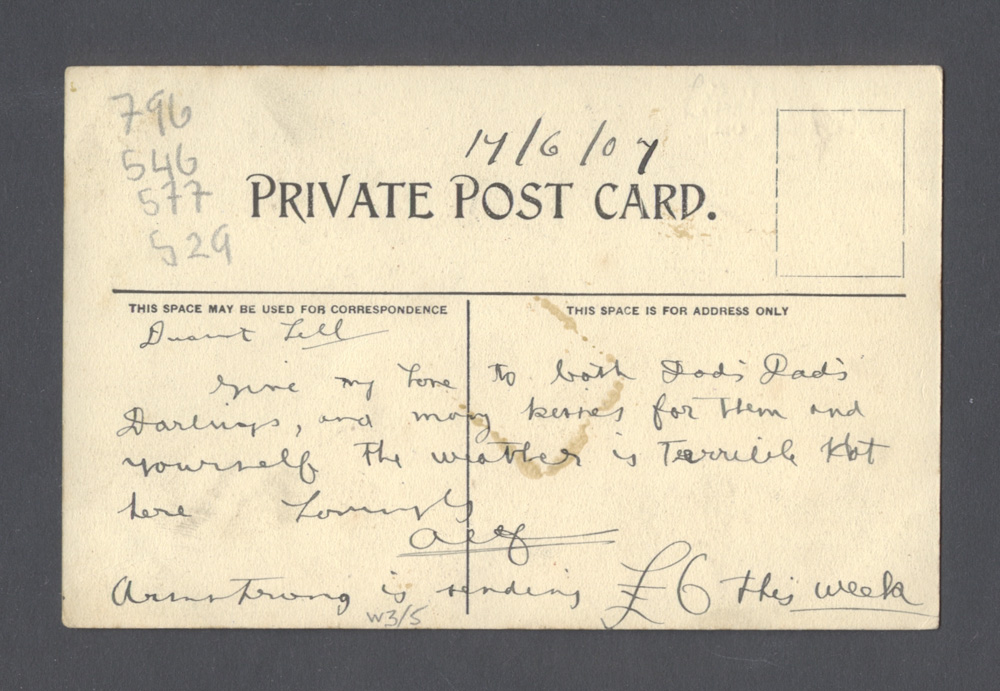 796
546
577
529
14/6/07
PRIVATE POST CARD.
THIS SPACE MAY BE USED FOR CORRESPONDENCE
THIS SPACE IS FOR ADDRESS ONLY
Dearest Lell
Give my love to both Dad's Dad's
Darlings, and many kisses for them and
yourself The weather is Terrible Hot
here Lovingly
Alf
Armstrong is sending £6 this week
W3/5